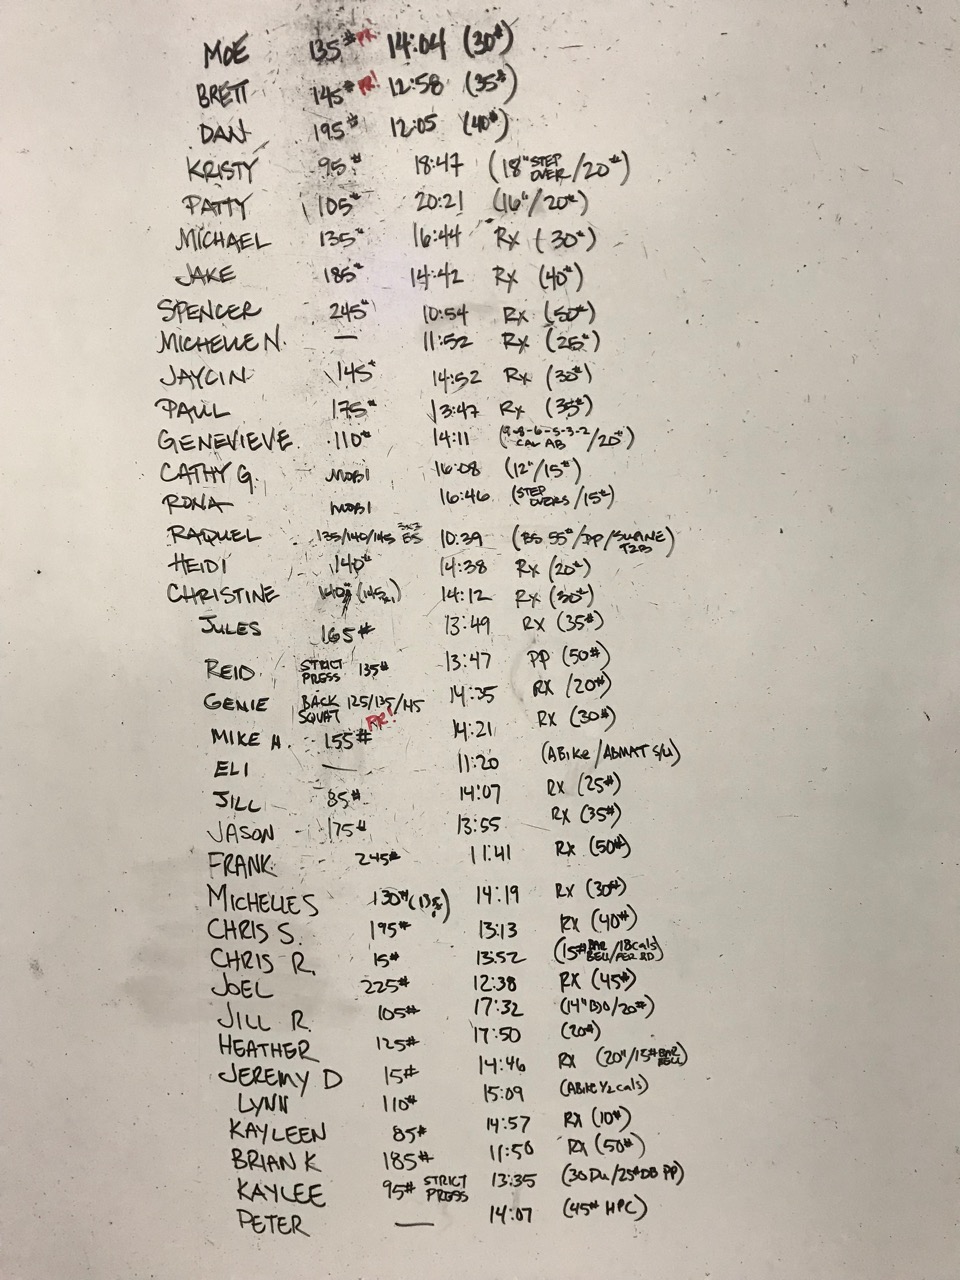 MOE 135# PR 14:04 (30#)
BRETT 145# PR! 12:58 (35#)
DAN 195# 12:05 (40#)
KRISTY 95# 18:47 (18" STEP OVER/20#)
PATTY 105# 20:21 (16"/20#)
MICHAEL 135# 16:44 RX (30#)
JAKE 185# 14:42 RX (40#)
SPENCER 245# 10:54 RX (50#)
MICHELLE N. — 11:52 RX (25#)
JAYCIN 145# 14:52 RX (30#)
PAUL 175# 13:47 RX (35#)
GENEVIEVE 110# 14:11 (9-8-6-5-3-2 CAL AB/20#)
CATHY G. MOBI 16:08 (12"/15#)
RONA MOBI 16:46 (STEP OVERS/15#)
RAQUEL 135/140/145 3x3 BS 10:39 (BS 55#/PP/SUPINE T2B)
HEIDI 140# 14:38 RX (20#)
CHRISTINE 140# (145) 14:12 RX (30#)
JULES 165# 13:49 RX (35#)
REID STRICT PRESS 135# 13:47 PP (50#)
GENIE BACK SQUAT 125/135/145 14:35 RX (20#)
MIKE H 155# PR! 14:21 RX (30#)
ELI — 11:20 (ABIKE/ABMAT S/U)
JILL 85# 14:07 RX (25#)
JASON 175# 13:55 RX (35#)
FRANK 245# 11:41 RX (50#)
MICHELLE S 130# (135) 14:19 RX (30#)
CHRIS S. 195# 13:13 RX (40#)
CHRIS R. 15# 13:52 (15# BAR BELL/18cals PER RD)
JOEL 225# 12:38 RX (45#)
JILL R. 105# 17:32 (14" BJO/20#)
HEATHER 125# 17:50 (20#)
JEREMY D 15# 14:46 RX (20"/15# BAR BELL)
LYNN 110# 15:09 (ABIKE 1/2 cals)
KAYLEEN 85# 14:57 RX (10#)
BRIAN K 185# 11:50 RX (50#)
KAYLEE 95# STRICT PRESS 13:35 (30 Du/25# DB PP)
PETER — 14:07 (45# HPC)